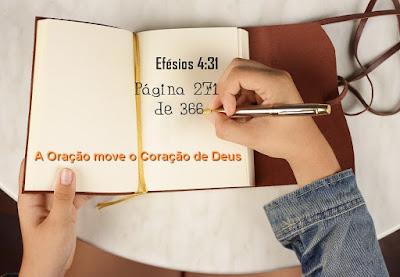 Efésios 4:31
Página 271
de 366
A Oração move o Coração de Deus